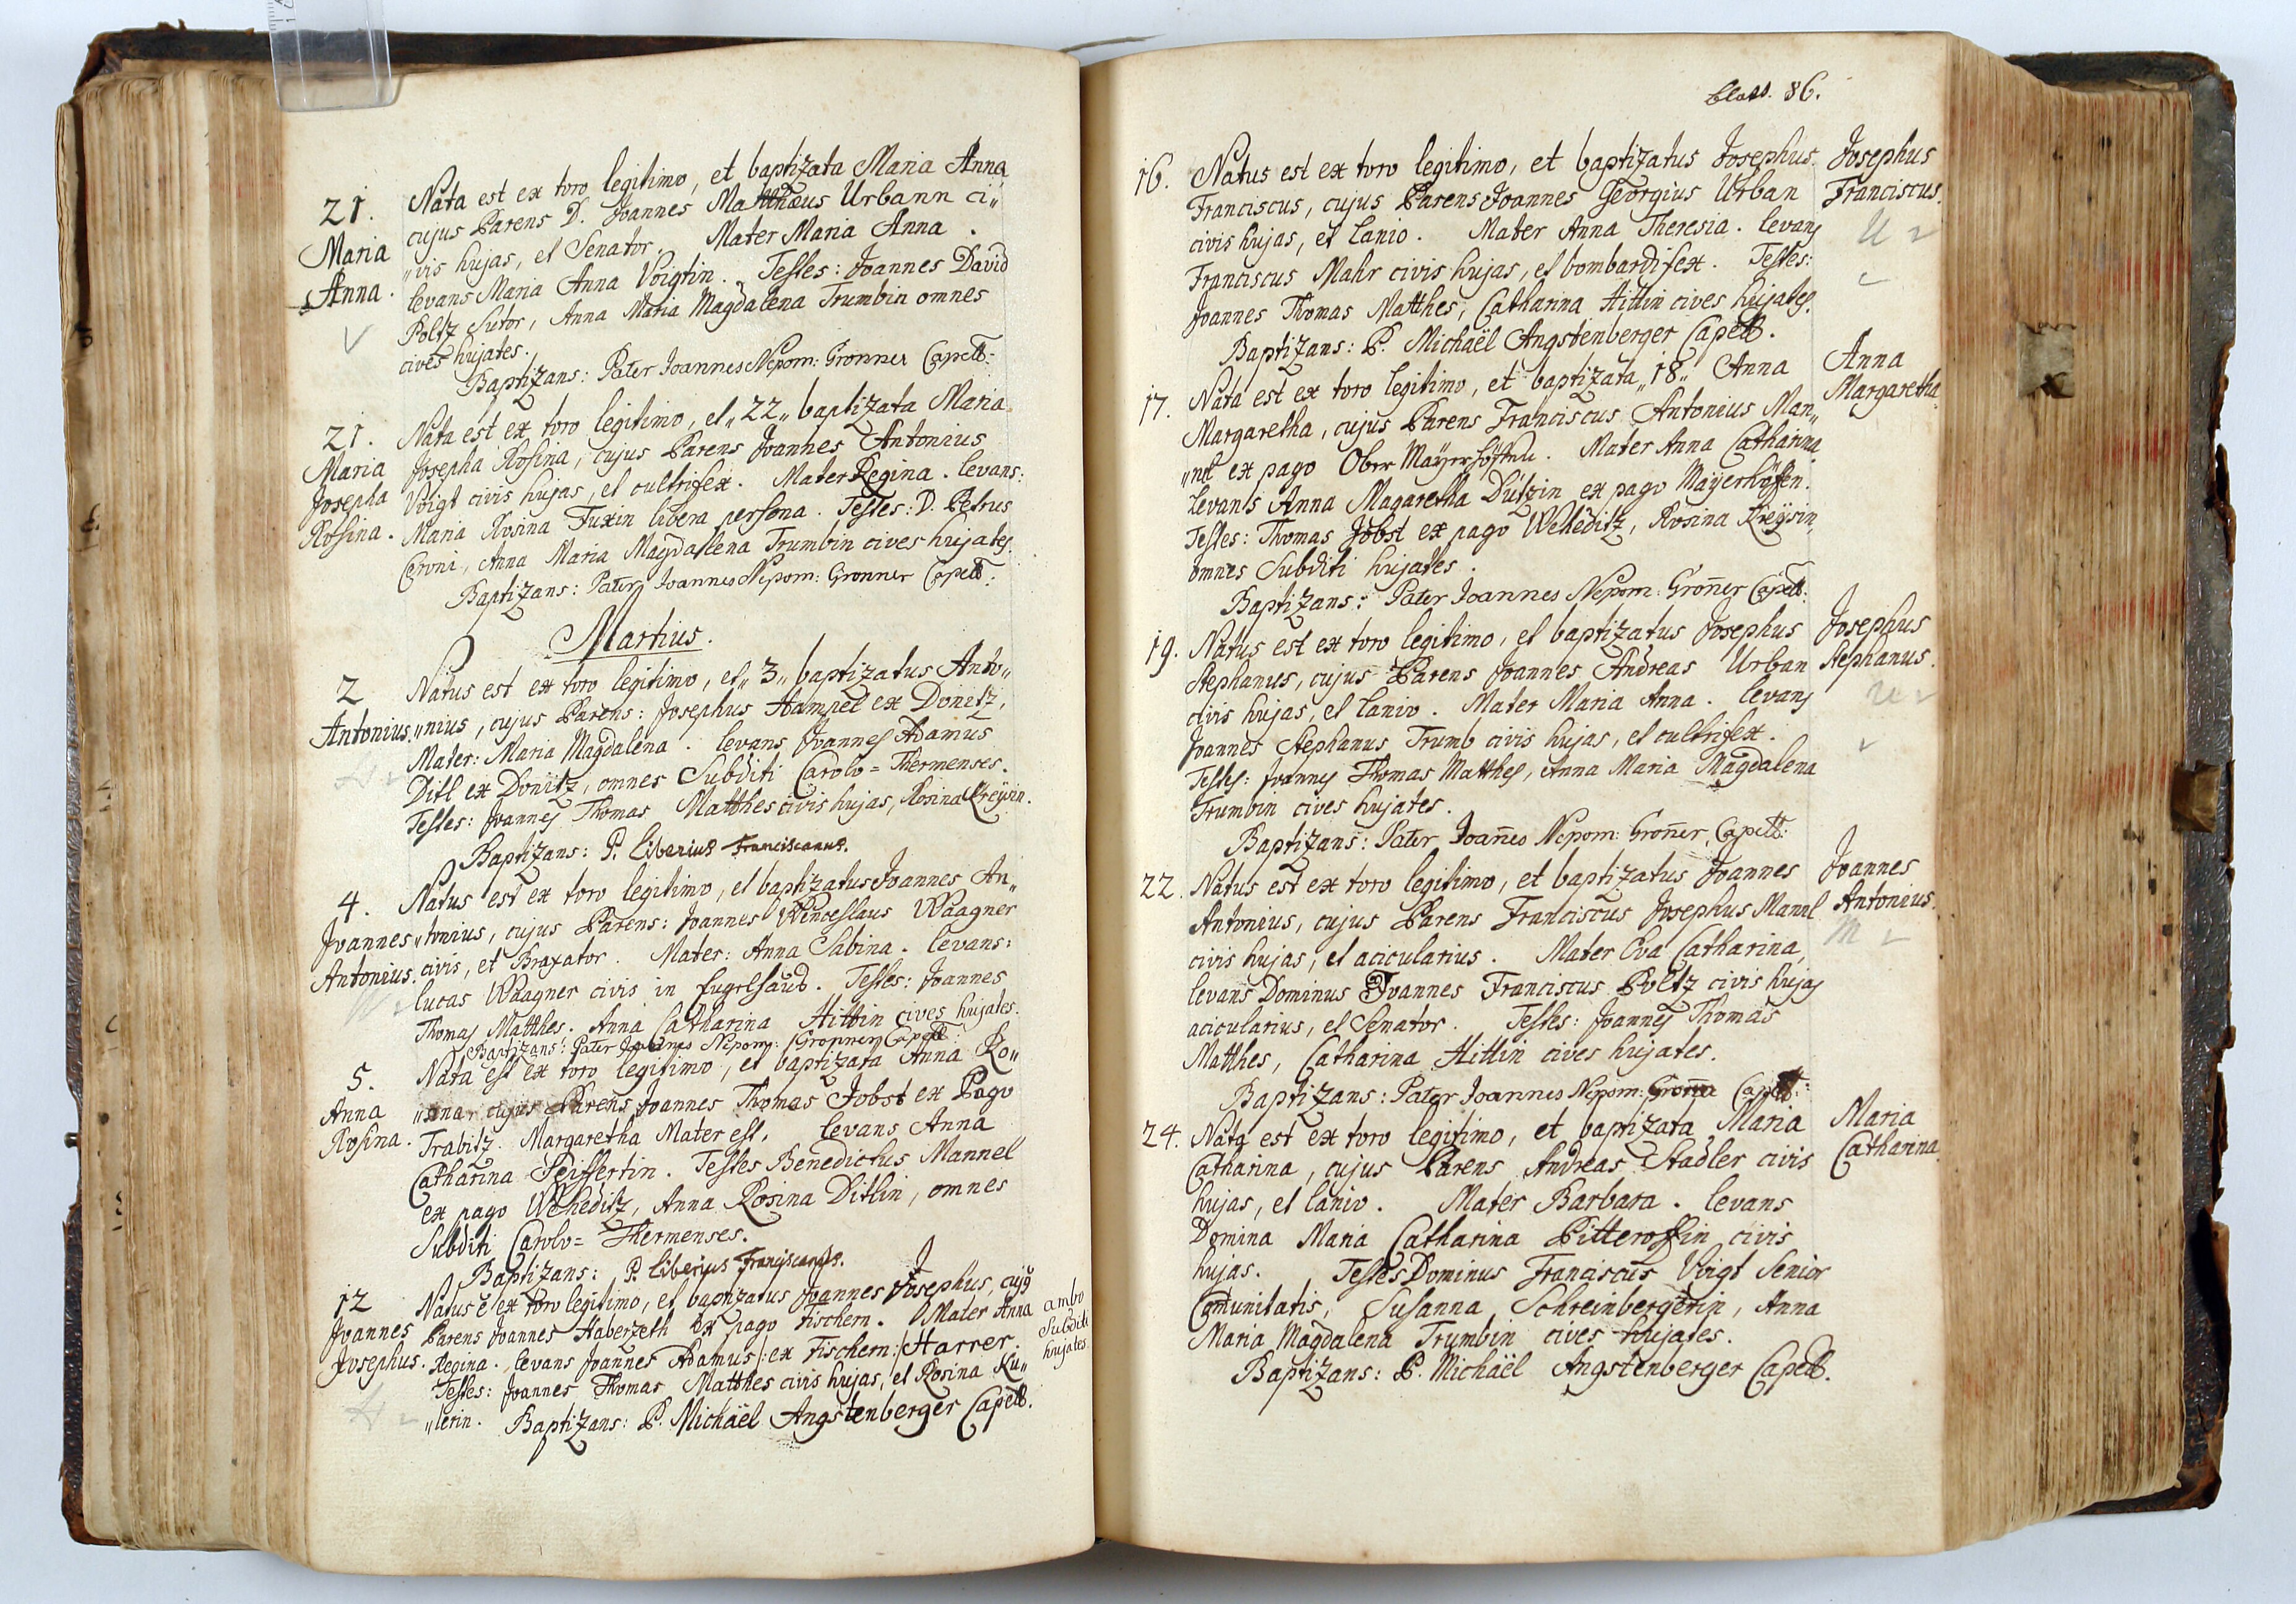 21. Nata est ex toro legitimo, et baptizata Maria Anna
cujus Parens D. Joannes Matthæus Urbann ci„
Maria „vis hujas, et Senator. Mater Maria Anna.
Anna. levans Maria Anna Voigtin. Testes: Joannes David
Poltz Sutor, Anna Maria Magdalena Trumbin omnes
cives hujates.
Baptizans: Pater Joannes Nepom: Gronner Capell:
21. Nata est ex toro legitimo, et „22„ baptizata Maria
Maria Josepha Rosina, cujus Parens Joannes Antonius
Josepha Voigt civis hujas, et cultrifex. Mater Regina. levans:
Rosina. Maria Rosina Fuxin libera persona. Testes: D. Petrus
Ceroni, Anna Maria Magdallena Trumbin cives hujates.
Baptizans: Pater Joannes Nepom: Gronner Capell:
Martius.
2 Natus est ex toro legitimo, et „3„ baptizatus Anto„
Antonius. „nius, cujus Parens: Josephus Hampel ex Donitz,
Mater: Maria Magdalena. levans Joannes Adamus
Ditl ex Donitz, omnes Subditi Carolo=Thermenses.
Testes: Joannes Thomas Matthes civis hujas, Rosina Kreysin.
Baptizans: P. Liberius Franciscanus.
4. Natus est ex toro legitimo, et baptizatus Joannes An„
Joannes „tonius, cujus Parens: Joannes Wenceslaus Waagner
Antonius. civis, et Braxator. Mater: Anna Sabina. levans:
Lucas Waagner civis in Engelhaus. Testes: Joannes
Thomas Matthes. Anna Catharina Hittin cives hujates.
Baptizans: Pater Joannes Nepom: Gronner Capell:
5. Nata est ex toro legitimo, et baptizata Anna Ro„
Anna „sina, cujus Parens Joannes Thomas Jobst ex Pago
Rosina. Trabitz. Margaretha Mater est. levans Anna
Catharina Seiffertin. Testes Benedictus Mannel
ex pago Weheditz, Anna Rosina Ditlin, omnes
Subditi Carolo=Thermenses.
Baptizans: P. Liberius Franciscanus.
12 Natus ē ex toro legitimo, et baptizatus Joannes Josephus, cujus
Joannes Parens Joannes Haberzeth ex pago Fischern. Mater Anna ambo
Josephus. Regina. levans Joannes Adamus /: ex Fischern :/ Harrer Subditi
Testes: Joannes Thomas Matthes civis hujas, et Rosina Kü„ hujates.
„lerin. Baptizans: P. Michaël Angstenberger Capell.
blatt. 86.
16. Natus est ex toro legitimo, et baptizatus Josephus Josephus
Franciscus, cujus Parens Joannes Georgius Urban Franciscus.
civis hujas, et lanio. Mater Anna Theresia. levans
Franciscus Mahr civis hujas, et bombardifex. Testes:
Joannes Thomas Matthes, Catharina Hittin cives hujates.
Baptizans: P. Michaël Angstenberger Capell.
17. Nata est ex toro legitimo, et baptizata „18„ Anna Anna
Margaretha, cujus Parens Franciscus Antonius Man„ Margaretha
„nel ex pago Ober Mayerhöffen. Mater Anna Catharina
Levans Anna Magaretha Dützin ex pago Mayerhöffen.
Testes: Thomas Jobst ex pago Weheditz, Rosina Kreysin,
omnes Subditi hujates.
Baptizans: Pater Joannes Nepom: Groner Capell:
19. Natus est ex toro legitimo, et baptizatus Josephus Josephus
Stephanus, cujus Parens Joannes Andreas Urban Stephanus.
civis hujas, et lanio. Mater Maria Anna. levans
Joannes Stephanus Trumb civis hujas, et cultrifex.
Testes: Joannes Thomas Matthes, Anna Maria Magdalena
Trumbin cives hujates.
Baptizans: Pater Joañes Nepom: Groñer, Capell:
22. Natus est ex toro legitimo, et baptizatus Joannes Joannes
Antonius, cujus Parens Franciscus Josephus Mannl Antonius.
civis hujas, et acicularius. Mater Eva Catharina,
levans Dominus Joannes Franciscus Poltz civis hujas
acicularius, et Senator. Testes: Joannes Thomas
Matthes, Catharina Hittin cives hujates.
Baptizans: Pater Joannes Nepom: Capell:
24. Nata est ex toro legitimo, et baptizata Maria Maria
Catharina, cujus Parens Andreas Stadler civis Catharina.
hujas, et lanio. Mater Barbara. levans
Domina Maria Catharina Pitteroffin civis
hujas. Testes Dominus Franciscus Voigt Senior
Comunitatis, Susanna Schreinbergerin, Anna
Maria Magdalena Trumbin cives hujates.
Baptizans: P. Michaël Angstenberger Capell.